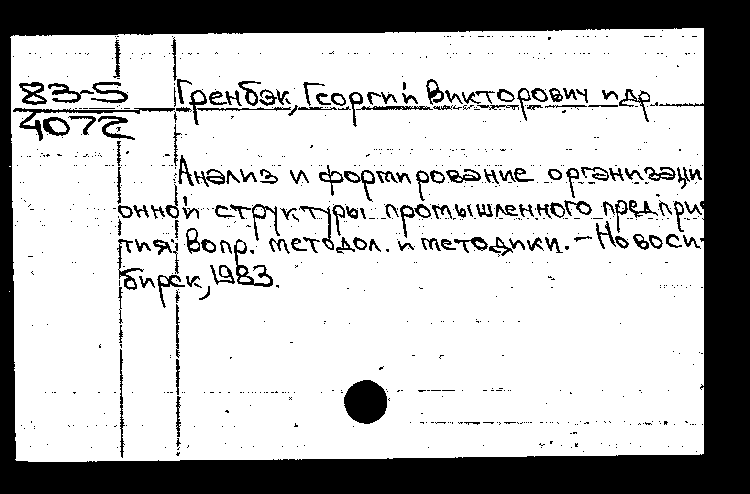 83-5 Гренбэк, Георгий Викторович и др.
4072
Анализ и формирование организаци
онной структуры промышленного предприя
тия: Вопр. методол. и методики. – Новоси-
бирск, 1983.